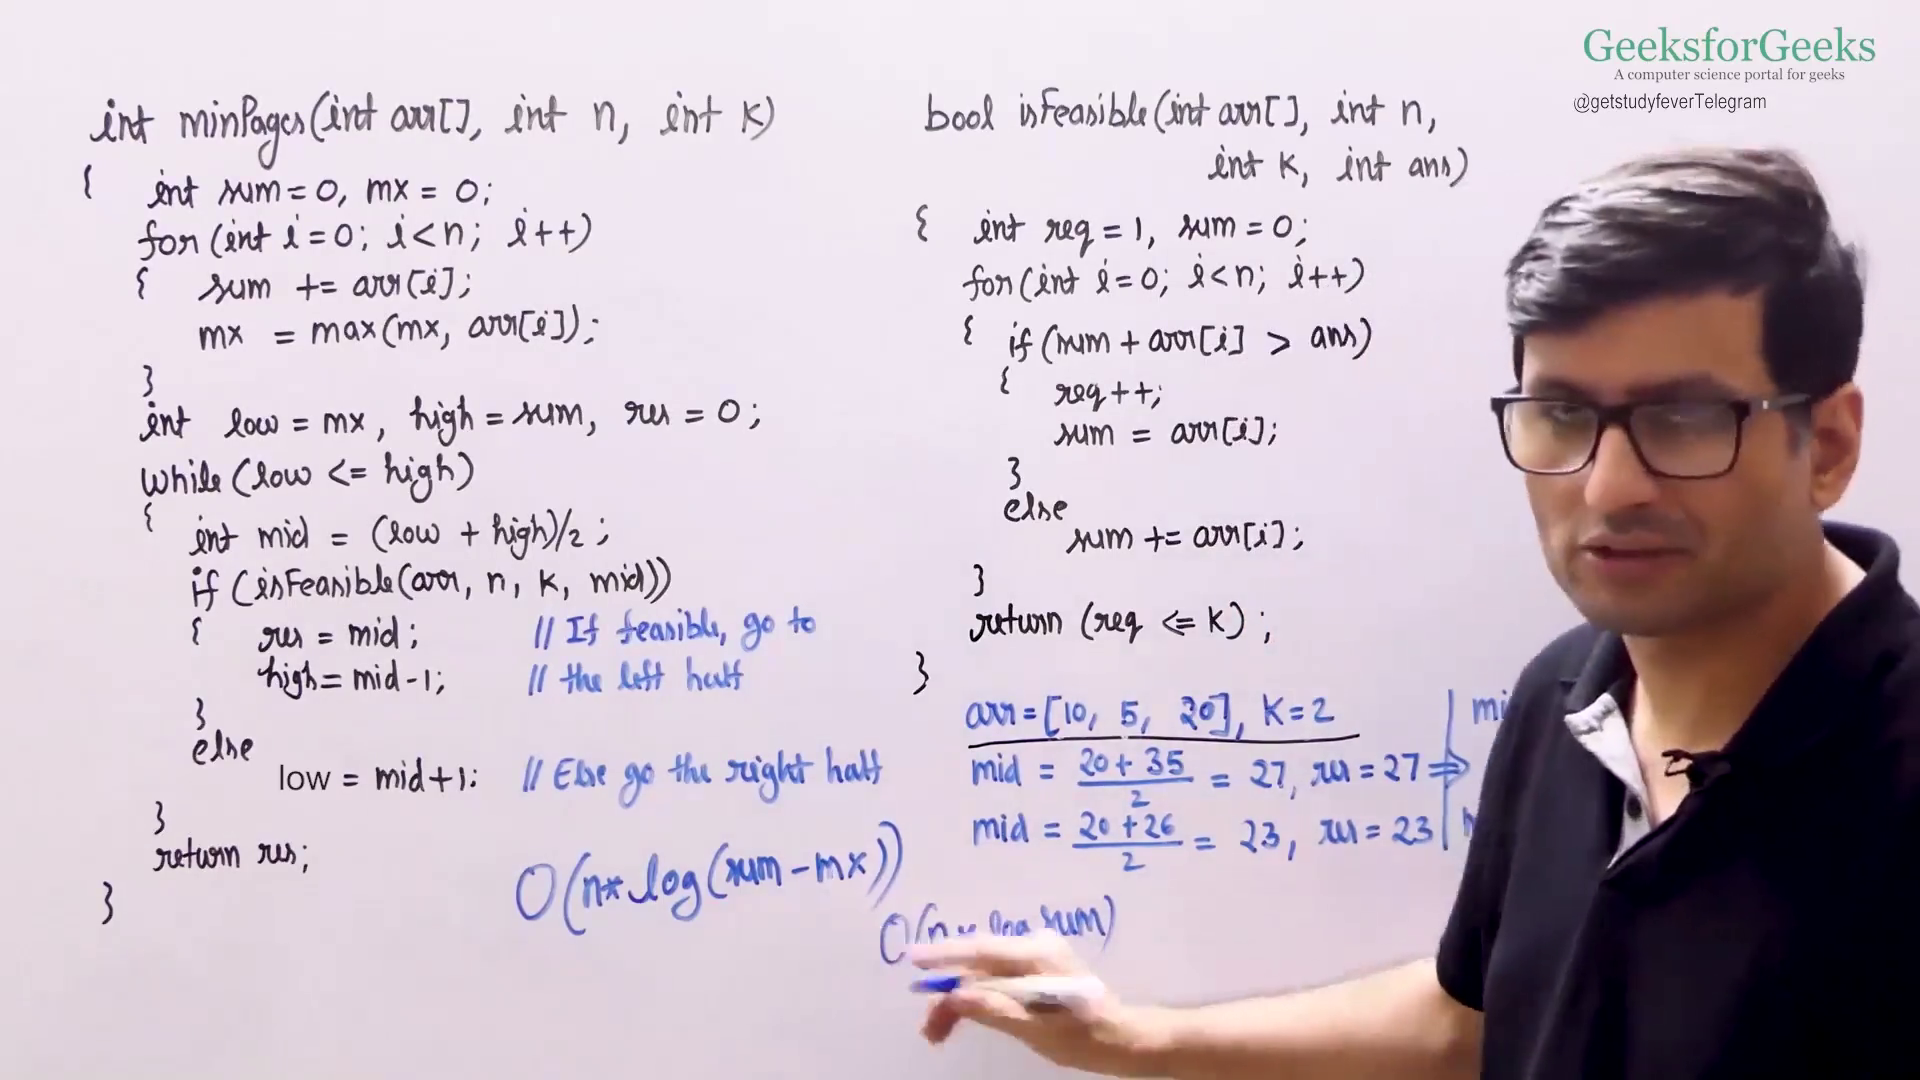 GeeksforGeeks
A computer science portal for geeks
@getstudyfeverTelegram
int minPages(int arr[], int n, int k)
{ int sum=0, mx = 0;
for (int i=0; i<n; i++)
{ sum += arr[i];
mx = max(mx, arr[i]);
}
int low = mx, high = sum, res = 0;
while (low <= high)
{
int mid = (low + high)/2;
if (isFeasible(arr, n, k, mid))
{ res = mid; // If feasible, go to
high = mid-1; // the left half
}
else
low = mid+1; // Else go the right half
}
return res;
}
O(n* log(sum-mx))
bool isFeasible(int arr[], int n,
int k, int ans)
{ int req = 1, sum = 0;
for(int i=0; i<n; i++)
{ if (sum + arr[i] > ans)
{ req++;
sum = arr[i];
}
else
sum += arr[i];
}
return (req <= k);
}
arr=[10, 5, 20], k=2
mid = 20+35/2 = 27, res = 27 ⇒
mid = 20+26/2 = 23, res = 23
O(n* log sum)